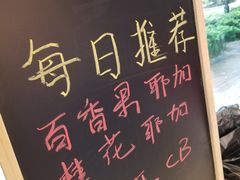 每日推荐
百香果耶加
花耶加
CB